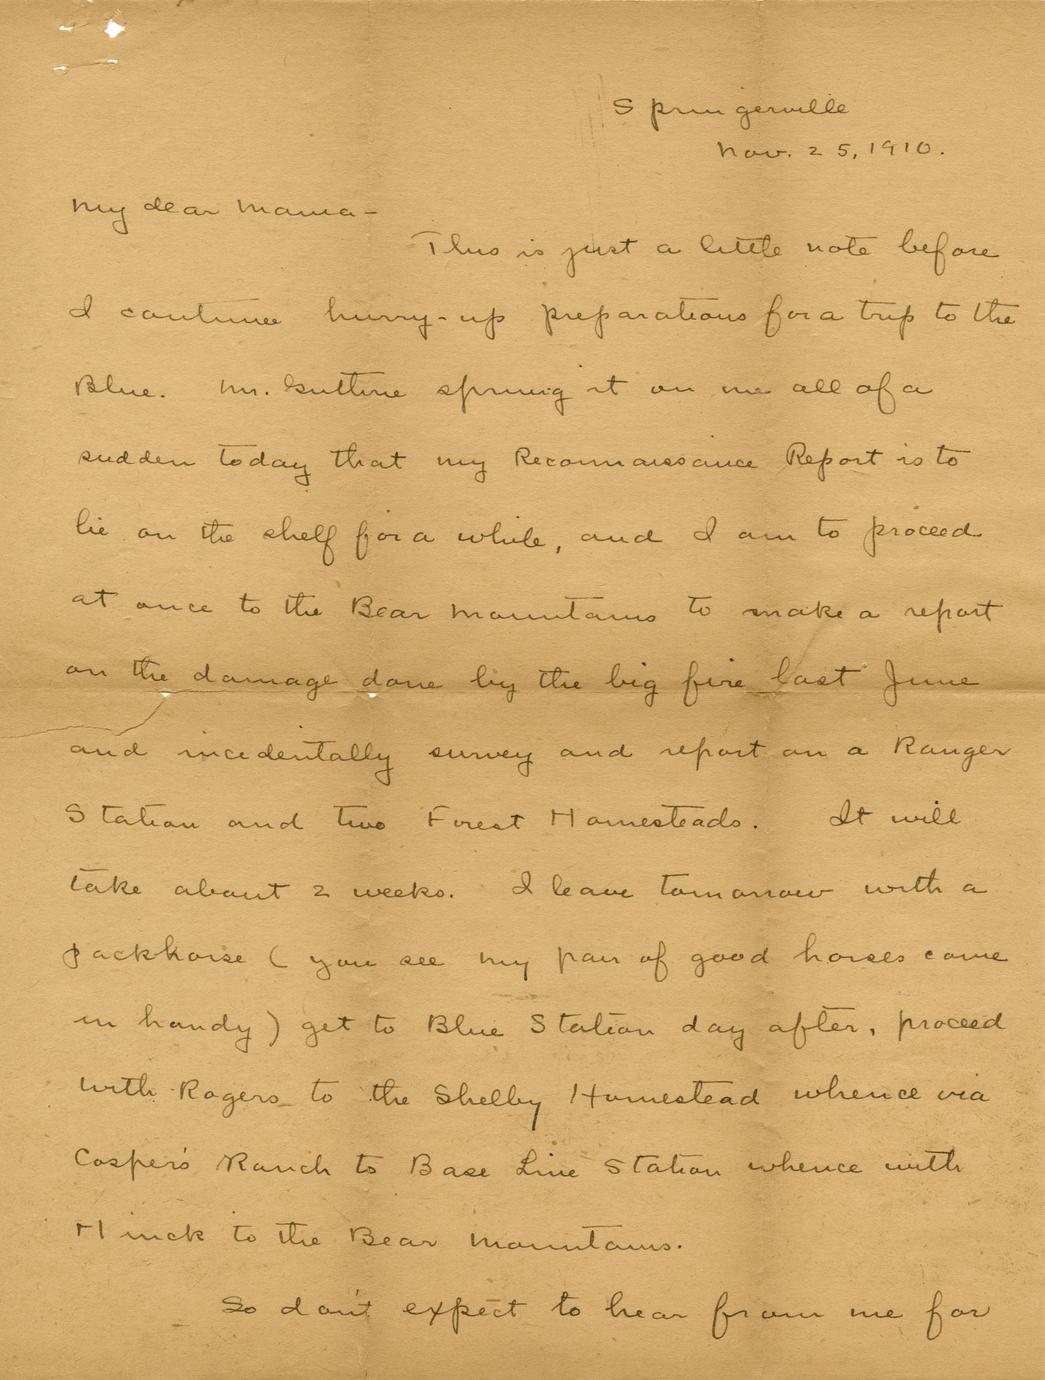 Springerville
Nov. 25, 1910.
My dear Mama –
This is just a little note before
I continue hurry-up preparations for a trip to the
Blue. Mr. Guthrie sprung it on me all of a
sudden today that my Reconnaissance Report is to
lie on the shelf for a while, and I am to proceed
at once to the Bear Mountains to make a report
on the damage done by the big fire last June
and incedentally survey and report on a Ranger
Station and two Forest Homesteads. It will
take about 2 weeks. I leave tomorrow with a
packhorse (you see my pair of good horses come
in handy) get to Blue Station day after, proceed
with Rogers to the Shelby Homestead whence via
Cosper's Ranch to Base Line Station whence with
Hinck to the Bear Mountains.
So don't expect to hear from me for